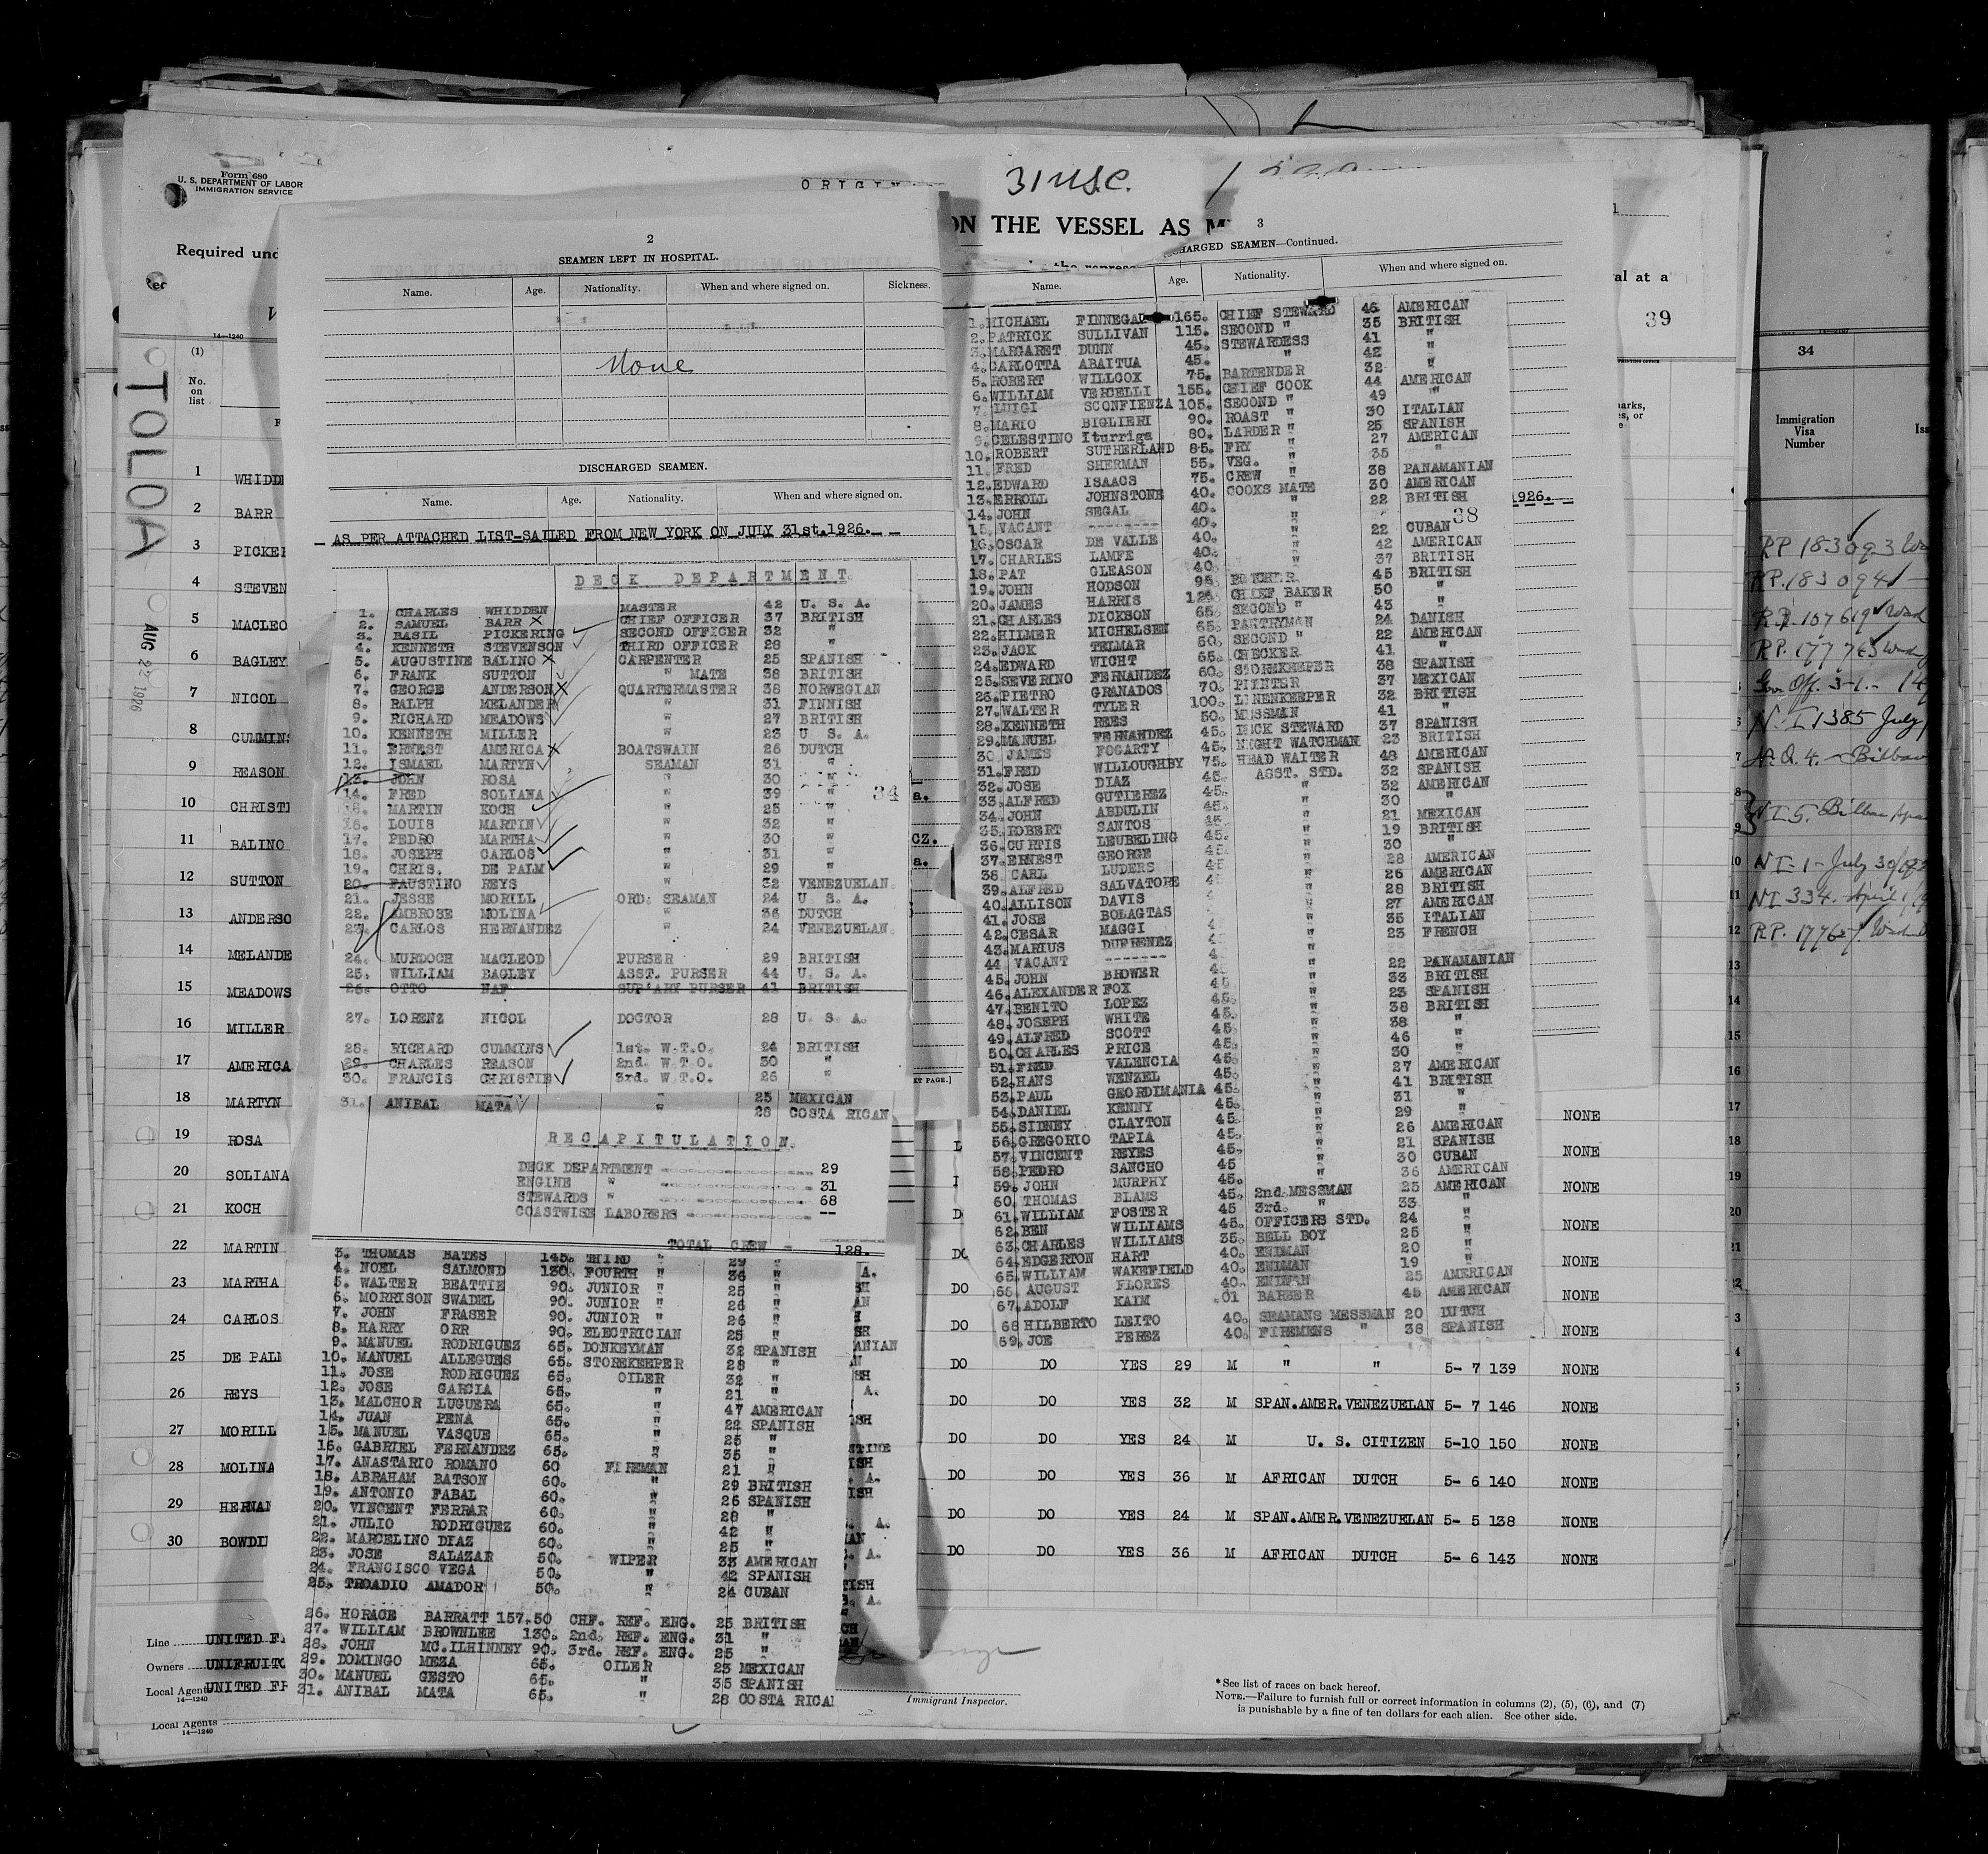 Form 680
U. S. DEPARTMENT OF LABOR
IMMIGRATION SERVICE
Required und
14—1240
(1)
No.
on
list
TOLOA
AUG 22 1926
1 WHIDDE
2 BARR
3 PICKER
4 STEVEN
5 MACLEO
6 BAGLEY
7 NICOL
8 CUMMINS
9 REASON
10 CHRISTI
11 BALINO
12 SUTTON
13 ANDERSO
14 MELANDE
15 MEADOWS
16 MILLER
17 AMERICA
18 MARTYN
19 ROSA
20 SOLIANA
21 KOCH
22 MARTIN
23 MARTHA
24 CARLOS
25 DE PALM
26 REYS
27 MORILL
28 MOLINA
29 HERNAN
30 BOWDI
Line UNITED F
Owners UNIFRUITC
Local Agents UNITED FR
14—1240
Local Agents
14—1240
2
SEAMEN LEFT IN HOSPITAL.
Name. Age. Nationality. When and where signed on. Sickness.
None
DISCHARGED SEAMEN.
Name. Age. Nationality. When and where signed on.
AS PER ATTACHED LIST-SAILED FROM NEW YORK ON JULY 31st.1926.
DECK DEPARTMENT.
1. CHARLES WHIDDEN MASTER 42 U. S. A.
2. SAMUEL BARR X CHIEF OFFICER 37 BRITISH
3. BASIL PICKERING SECOND OFFICER 32 "
4. KENNETH STEVENSON THIRD OFFICER 28 "
5. AUGUSTINE BALINO X CARPENTER 25 SPANISH
6. FRANK SUTTON " MATE 38 BRITISH
7. GEORGE ANDERSON X QUARTERMASTER 38 NORWEGIAN
8. RALPH MELANDER " 31 FINNISH
9. RICHARD MEADOWS " 27 BRITISH
10. KENNETH MILLER " 23 U. S. A.
11. ERNEST AMERICA X BOATSWAIN 26 DUTCH
12. ISMAEL MARTYN SEAMAN 31 "
13. JOHN ROSA " 30 "
14. FRED SOLIANA " 39 " 34
15. MARTIN KOCH " 25 "
16. LOUIS MARTIN " 32 "
17. PEDRO MARTHA " 30 "
18. JOSEPH CARLOS " 31 "
19. CHRIS. DE PALM " 29 "
20. FAUSTINO REYS " 32 VENEZUELAN.
21. JESSE MORILL ORD. SEAMAN 24 U. S. A.
22. AMBROSE MOLINA " 36 DUTCH
23. CARLOS HERNANDEZ " 24 VENEZUELAN.
24. MURDOCH MACLEOD PURSER 29 BRITISH
25. WILLIAM BAGLEY ASST. PURSER 44 U. S. A.
26. OTTO NAF SUP'ARY PURSER 41 BRITISH
27. LORENZ NICOL DOCTOR 28 U. S. A.
28. RICHARD CUMMINS 1st. W.T.O. 24 BRITISH
29. CHARLES REASON 2nd. W.T.O. 30 "
30. FRANCIS CHRISTIE 3rd. W.T.O. 26 "
25 MEXICAN
31. ANIBAL MATA " 28 COSTA RICAN
RECAPITULATION.
DECK DEPARTMENT 29
ENGINE " 31
STEWARDS " 68
COASTWISE LABORERS --
TOTAL CREW - 128.
3. THOMAS BATES 145. THIRD " 29 "
4. NOEL SALMOND 130. FOURTH " 36 "
5. WALTER BEATTIE 90. JUNIOR " 25 "
6. MORRISON SWADEL 90. JUNIOR " 26 "
7. JOHN FRASER 90. JUNIOR " 26 "
8. HARRY ORR 90. ELECTRICIAN 25 "
9. MANUEL RODRIGUEZ 65. DONKEYMAN 32 SPANISH
10. MANUEL ALLEGUES 65. STOREKEEPER 28 "
11. JOSE RODRIGUEZ 65. OILER 32 "
12. JOSE GARCIA 65. " 21 "
13. MALCHOR LUGUERA 65. " 47 AMERICAN
14. JUAN PENA 65. " 22 SPANISH
15. MANUEL VASQUE 65. " 25 "
16. GABRIEL FERNANDEZ 65. " 35 "
17. ANASTARIO ROMANO 60 FIREMAN 21 "
18. ABRAHAM BATSON 60. " 29 BRITISH
19. ANTONIO FABAL 60. " 26 SPANISH
20. VINCENT FERRAR 60. " 28 "
21. JULIO RODRIGUEZ 60. " 42 "
22. MARCELINO DIAZ 60. " 25 "
23. JOSE SALAZAR 50. WIPER 33 AMERICAN
24. FRANCISCO VEGA 50. " 42 SPANISH
25. TROADIO AMADOR 50. " 24 CUBAN
26. HORACE BARRATT 157.50 CHF. REF. ENG. 25 BRITISH
27. WILLIAM BROWNLEE 130. 2nd. REF. ENG. 31 "
28. JOHN MC.ILHINNEY 90. 3rd. REF. ENG. 25 "
29. DOMINGO MEZA 65. OILER 23 MEXICAN
30. MANUEL GESTO 65. " 35 SPANISH
31. ANIBAL MATA 65. " 28 COSTA RICA
ORIGIN
31 U.S.C.
ON THE VESSEL AS M
3
CHARGED SEAMEN—Continued.
Name. Age. Nationality. When and where signed on.
1. MICHAEL FINNEGAN 165. CHIEF STEWARD 46 AMERICAN
2. PATRICK SULLIVAN 115. SECOND " 35 BRITISH
3. MARGARET DUNN 45. STEWARDESS 41 "
4. CARLOTTA ABAITUA 45. " 42 "
5. ROBERT WILLCOX 75. BARTENDER 32 "
6. WILLIAM VERCELLI 155. CHIEF COOK 44 AMERICAN
7. LUIGI SCONFIENZA 105. SECOND " 49 "
8. MARIO BIGLIERI 90. ROAST " 30 ITALIAN
9. CELESTINO Iturriga 80. LARDER " 25 SPANISH
10. ROBERT SUTHERLAND 85. FRY " 27 AMERICAN
11. FRED SHERMAN 55. VEG. " 35 "
12. EDWARD ISAACS 75. CREW " 38 PANAMANIAN
13. ERROLL JOHNSTONE 40. COOKS MATE 30 AMERICAN
14. JOHN SEGAL 40. " 22 BRITISH
15. VACANT -------- 40. " 38
16. OSCAR DE VALLE 40. " 22 CUBAN
17. CHARLES LAMFE 40. " 42 AMERICAN
18. PAT GLEASON 40. " 37 BRITISH
19. JOHN HODSON 95. BUTCHER 45 BRITISH
20. JAMES HARRIS 125. CHIEF BAKER 50 "
21. CHARLES DICKSON 65. SECOND " 43 "
22. HILMER MICHELSEN 65. PANTRYMAN 24 DANISH
23. JACK TELMAR 50. SECOND " 22 AMERICAN
24. EDWARD WICHT 65. CHECKER 41 "
25. SEVERINO FERNANDEZ 60. STOREKEEPER 38 SPANISH
26. PIETRO GRANADOS 70. PRINTER 37 MEXICAN
27. WALTER TYLER 100. LINENKEEPER 32 BRITISH
28. KENNETH REES 50. MESSMAN 41 "
29. MANUEL FERNANDEZ 45. DECK STEWARD 37 SPANISH
30. JAMES FOGARTY 45. NIGHT WATCHMAN 23 BRITISH
31. FRED WILLOUGHBY 75. HEAD WAITER 48 AMERICAN
32. JOSE DIAZ 45. ASST. STD. 32 SPANISH
33. ALFRED GUTIEREZ 45. " 32 AMERICAN
34. JOHN ABDULIN 45. " 30 "
35. ROBERT SANTOS 45. " 21 MEXICAN
36. CURTIS LEUBELING 45. " 19 BRITISH
37. ERNEST GEORGE 45 " 30 "
38. CARL LUDERS 45 " 28 AMERICAN
39. ALFRED SALVATORE 4 " 26 AMERICAN
40. ALLISON DAVIS 4 " 28 BRITISH
41. JOSE BOLAGTAS 4 " 27 AMERICAN
42. CESAR MAGGI 4 " 35 ITALIAN
43. MARIUS DUFRENEZ 4 " 23 FRENCH
44 VACANT ------- 4 "
45. JOHN BROWER 4 " 22 PANAMANIAN
46. ALEXANDER FOX 45 " 33 BRITISH
47. BENITO LOPEZ 45. " 23 SPANISH
48. JOSEPH WHITE 45. " 38 BRITISH
49. ALFRED SCOTT 45. " 38 "
50. CHARLES PRICE 45. " 46 "
51. FRED VALENCIA 45. " 30 "
52. HANS WENZEL 45. " 27 AMERICAN
53. PAUL GEORDIMANIA 45. " 41 BRITISH
54. DANIEL KENNY 45. " 31 "
55. SIDNEY CLAYTON 45. " 29 "
56. GREGORIO TAPIA 45. " 26 AMERICAN
57. VINCENT REYES 45. " 21 SPANISH
58. PEDRO SANCHO 45 " 30 CUBAN
59. JOHN MURPHY 45. " 36 AMERICAN
60. THOMAS BLAMS 45. 2nd. MESSMAN 25 AMERICAN
61. WILLIAM FOSTER 45 3rd. " 33 "
62. BEN WILLIAMS 45. OFFICERS STD. 24 "
63. CHARLES WILLIAMS 35. BELL BOY 25 "
64. EDGERTON HART 40. ENDMAN 20 "
65. WILLIAM WAKEFIELD 40. ENDMAN 19 "
66. AUGUST FLORES 40. ENDMAN 25 AMERICAN
67. ADOLF KAIM .01 BARBER 45 AMERICAN
68 HILBERTO LEITO 40. SEAMANS MESSMAN 20 DUTCH
69. JOE PEREZ 40. FIREMENS " 38 SPANISH
al at a
39
1926.
NONE
NONE
NONE
NONE
NONE
NONE
NONE
DO DO YES 29 M " " 5- 7 139 NONE
DO DO YES 32 M SPAN.AMER. VENEZUELAN 5- 7 146 NONE
DO DO YES 24 M U. S. CITIZEN 5-10 150 NONE
DO DO YES 36 M AFRICAN DUTCH 5- 6 140 NONE
DO DO YES 24 M SPAN.AMER. VENEZUELAN 5- 5 138 NONE
DO DO YES 36 M AFRICAN DUTCH 5- 6 143 NONE
Immigrant Inspector.
* See list of races on back hereof.
NOTE.—Failure to furnish full or correct information in columns (2), (5), (6), and (7)
is punishable by a fine of ten dollars for each alien. See other side.
34
Immigration
Visa
Number
Iss
RP 183093 Wa
RP. 183094 —
R.P. 107619 Wad
RP. 177763 Wad
Gov. Off. 3-1.
N.I 1385 July
Bilbao
NI-1- July 30
NI 334. April